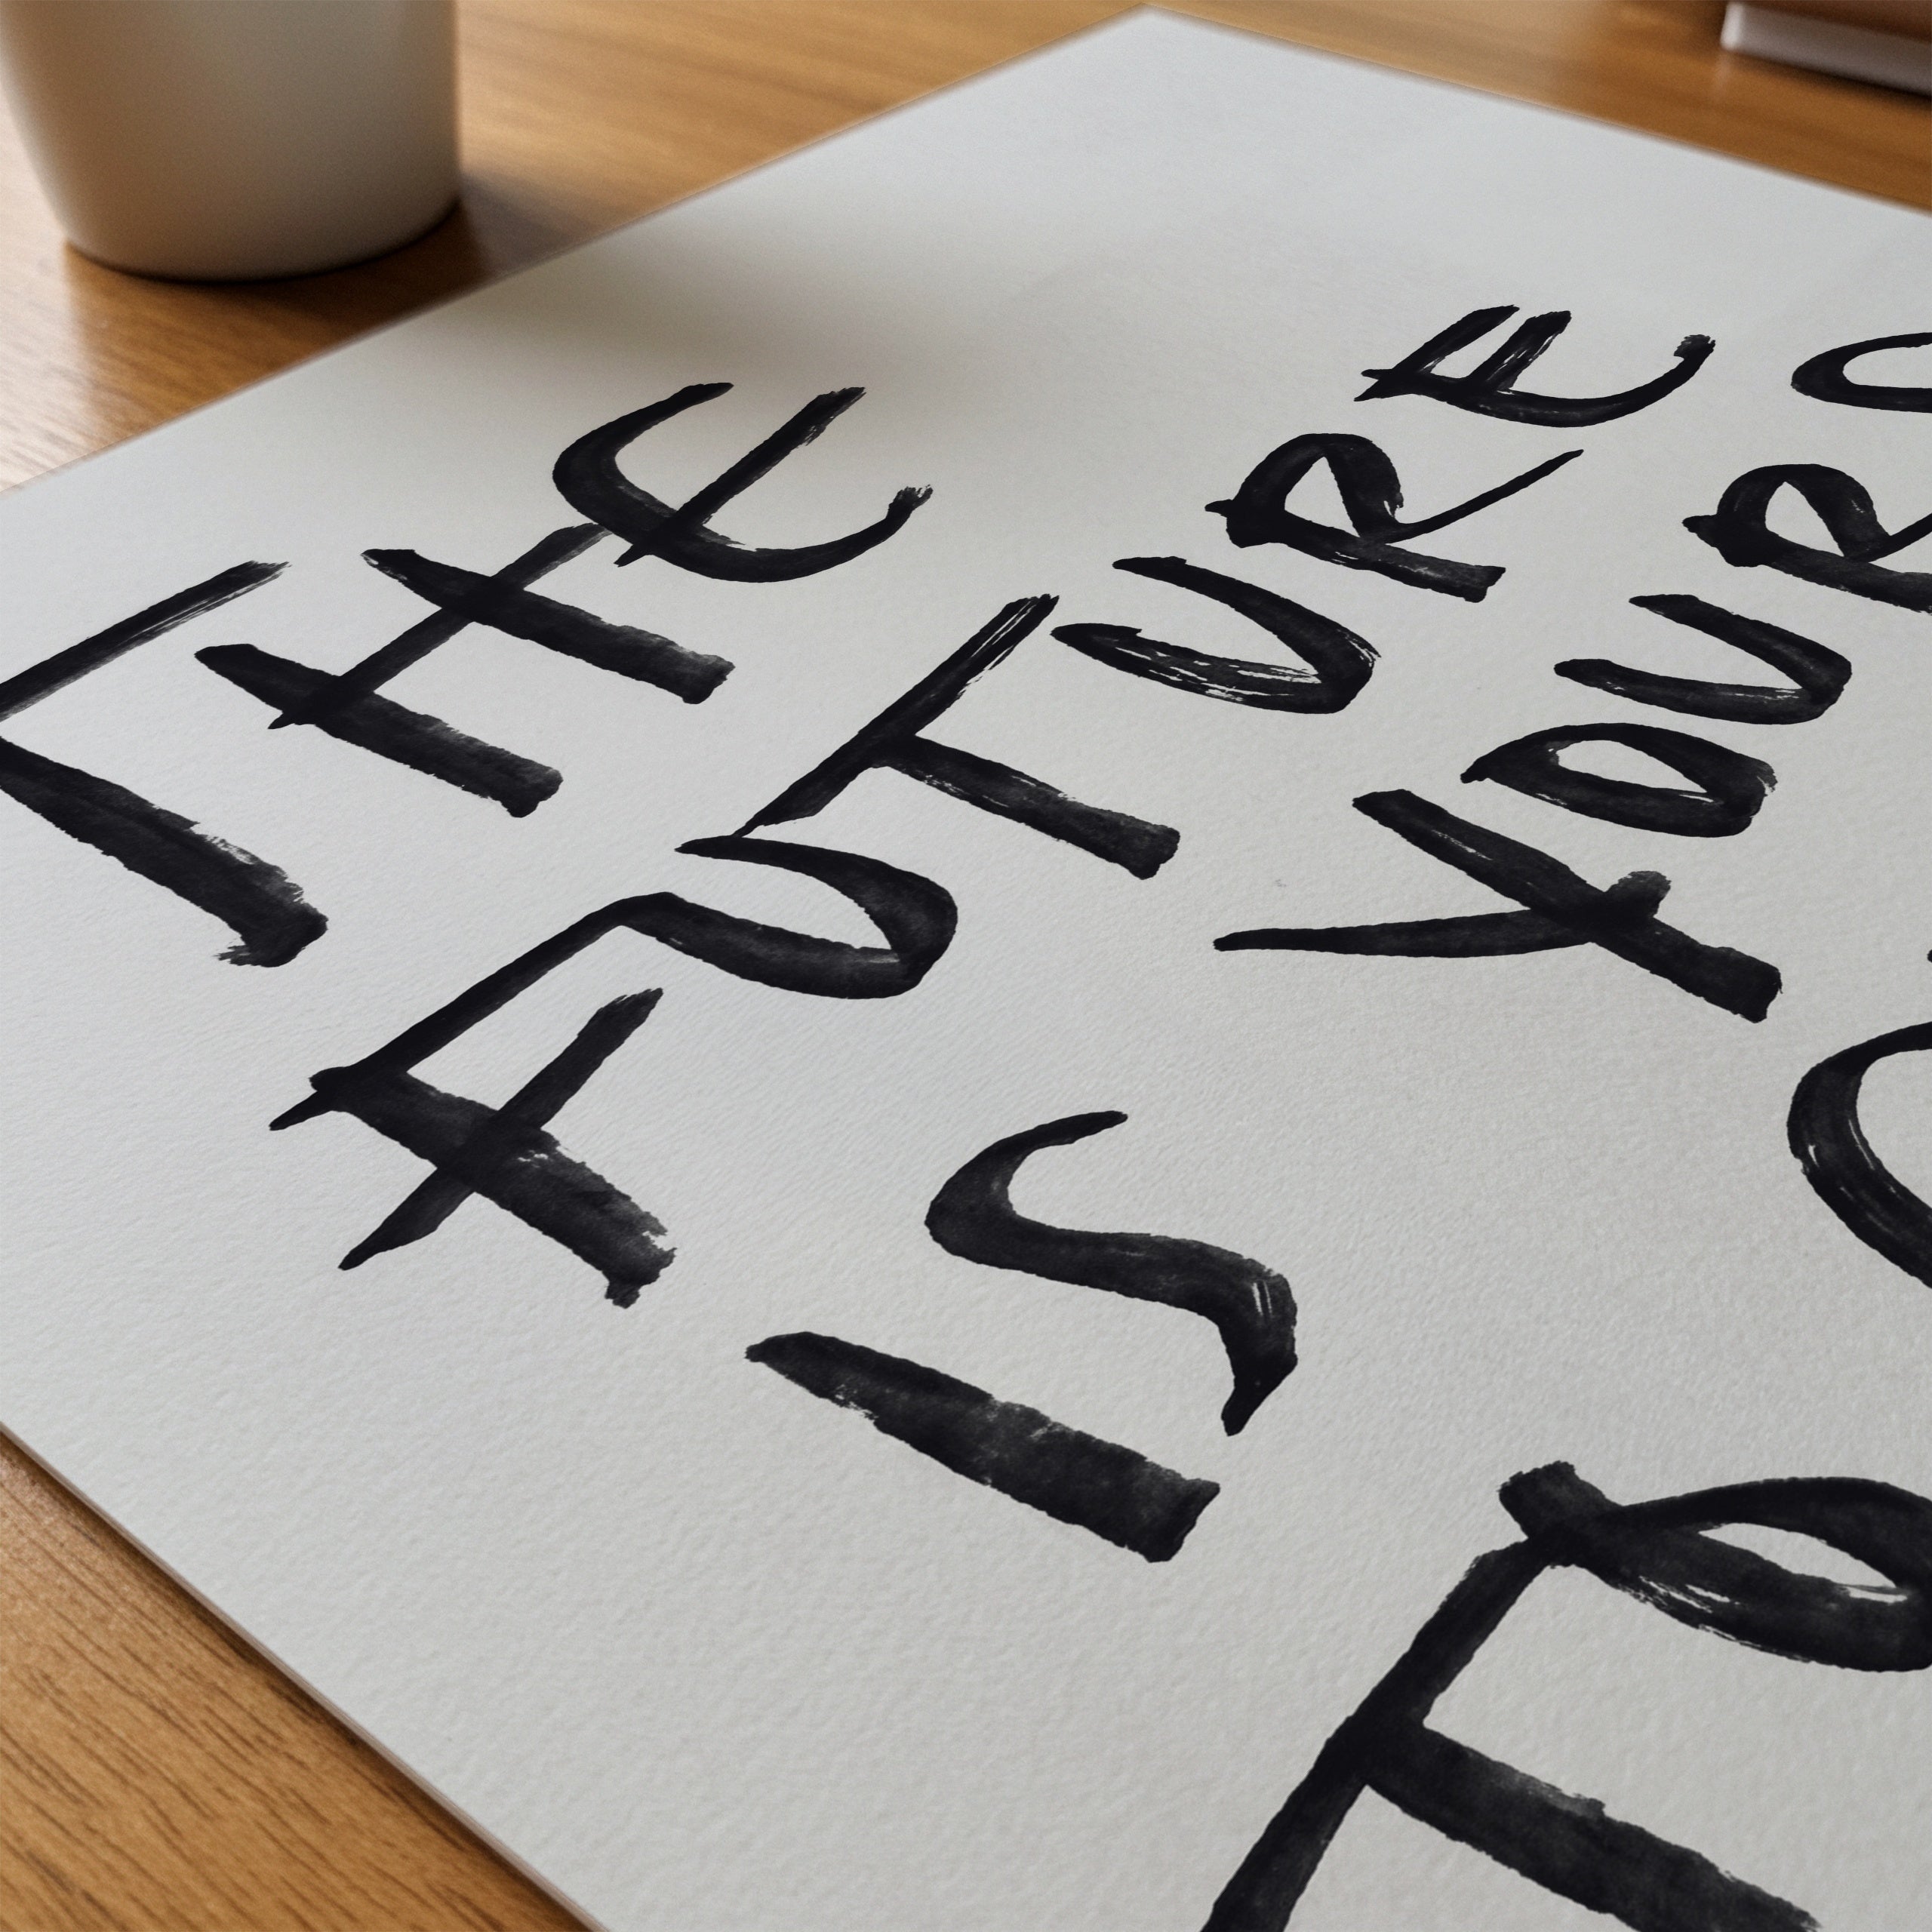 THE
FUTURE
IS YOURS
TO